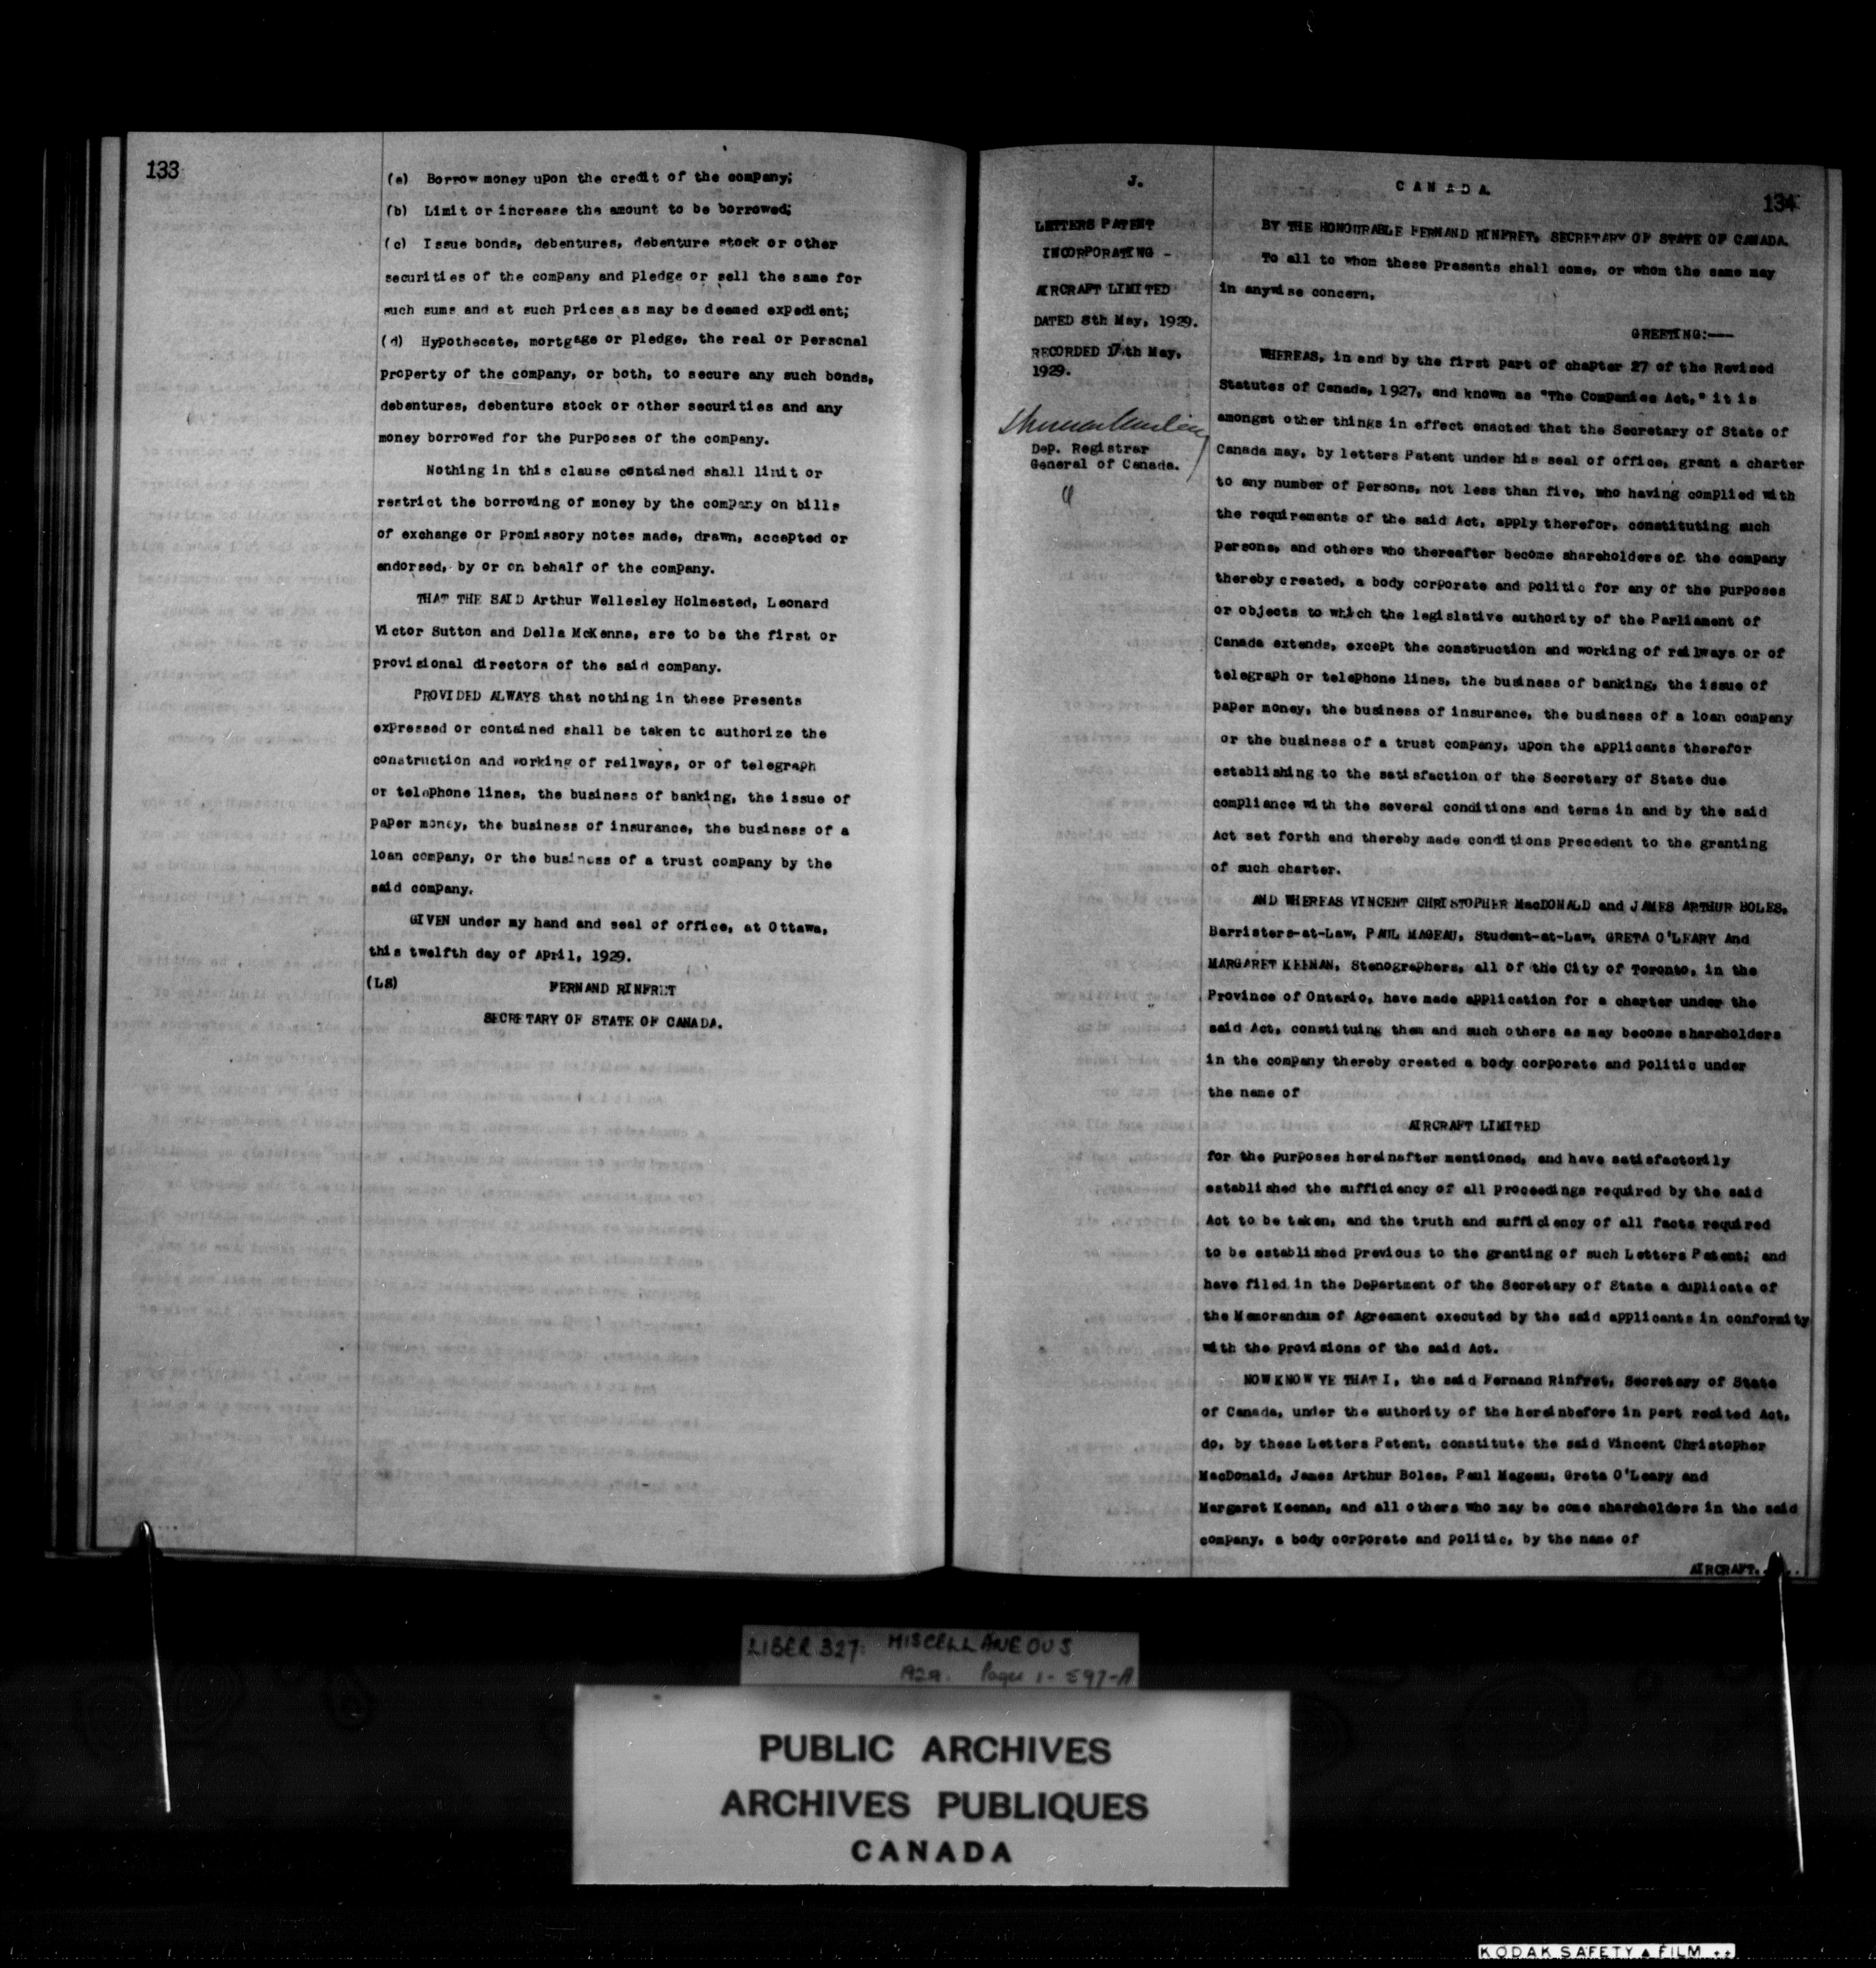 133
(a) Borrow money upon the credit of the company;
(b) Limit or increase the amount to be borrowed;
(c) Issue bonds, debentures, debenture stock or other
securities of the company and pledge or sell the same for
such sums and at such prices as may be deemed expedient;
(d) Hypothecate, mortgage or pledge, the real or personal
property of the company, or both, to secure any such bonds,
debentures, debenture stock or other securities and any
money borrowed for the purposes of the company.
Nothing in this clause contained shall limit or
restrict the borrowing of money by the company on bills
of exchange or promissory notes made, drawn, accepted or
endorsed, by or on behalf of the company.
THAT THE SAID Arthur Wellesley Holmested, Leonard
Victor Sutton and Della McKenna, are to be the first or
provisional directors of the said company.
PROVIDED ALWAYS that nothing in these presents
expressed or contained shall be taken to authorize the
construction and working of railways, or of telegraph
or telephone lines, the business of banking, the issue of
paper money, the business of insurance, the business of a
loan company, or the business of a trust company by the
said company.
GIVEN under my hand and seal of office, at Ottawa,
this twelfth day of April, 1929.
(LS) FERNAND RINFRET
SECRETARY OF STATE OF CANADA.
134
J.
LETTERS PATENT
INCORPORATING -
AIRCRAFT LIMITED
DATED 8th May, 1929.
RECORDED 17th May,
1929.
Dep. Registrar
General of Canada.
CANADA
BY THE HONOURABLE FERNAND RINFRET, SECRETARY OF STATE OF CANADA.
To all to whom these presents shall come, or whom the same may
in anywise concern,
GREETING:---
WHEREAS, in and by the first part of chapter 27 of the Revised
Statutes of Canada, 1927, and known as "The Companies Act," it is
amongst other things in effect enacted that the Secretary of State of
Canada may, by letters Patent under his seal of office, grant a charter
to any number of persons, not less than five, who having complied with
the requirements of the said Act, apply therefor, constituting such
persons, and others who thereafter become shareholders of the company
thereby created, a body corporate and politic for any of the purposes
or objects to which the legislative authority of the Parliament of
Canada extends, except the construction and working of railways or of
telegraph or telephone lines, the business of banking, the issue of
paper money, the business of insurance, the business of a loan company
or the business of a trust company, upon the applicants therefor
establishing to the satisfaction of the Secretary of State due
compliance with the several conditions and terms in and by the said
Act set forth and thereby made conditions precedent to the granting
of such charter.
AND WHEREAS VINCENT CHRISTOPHER MacDONALD and JAMES ARTHUR BOLES,
Barristers-at-Law, PAUL MAGEAU, Student-at-Law, GRETA O'LEARY And
MARGARET KEENAN, Stenographers, all of the City of Toronto, in the
Province of Ontario, have made application for a charter under the
said Act, constituing them and such others as may become shareholders
in the company thereby created a body corporate and politic under
the name of
AIRCRAFT LIMITED
for the purposes hereinafter mentioned, and have satisfactorily
established the sufficiency of all proceedings required by the said
Act to be taken, and the truth and sufficiency of all facts required
to be established previous to the granting of such Letters Patent; and
have filed in the Department of the Secretary of State a duplicate of
the Memorandum of Agreement executed by the said applicants in conformity
with the provisions of the said Act.
NOW KNOW YE THAT I, the said Fernand Rinfret, Secretary of State
of Canada, under the authority of the hereinbefore in part recited Act,
do, by these Letters Patent, constitute the said Vincent Christopher
MacDonald, James Arthur Boles, Paul Mageau, Greta O'Leary and
Margaret Keenan, and all others who may be come shareholders in the said
company, a body corporate and politic, by the name of
AIRCRAFT....
LIBER 327: MISCELLANEOUS
1929. Pages 1-597-A
PUBLIC ARCHIVES
ARCHIVES PUBLIQUES
CANADA
KODAK SAFETY FILM